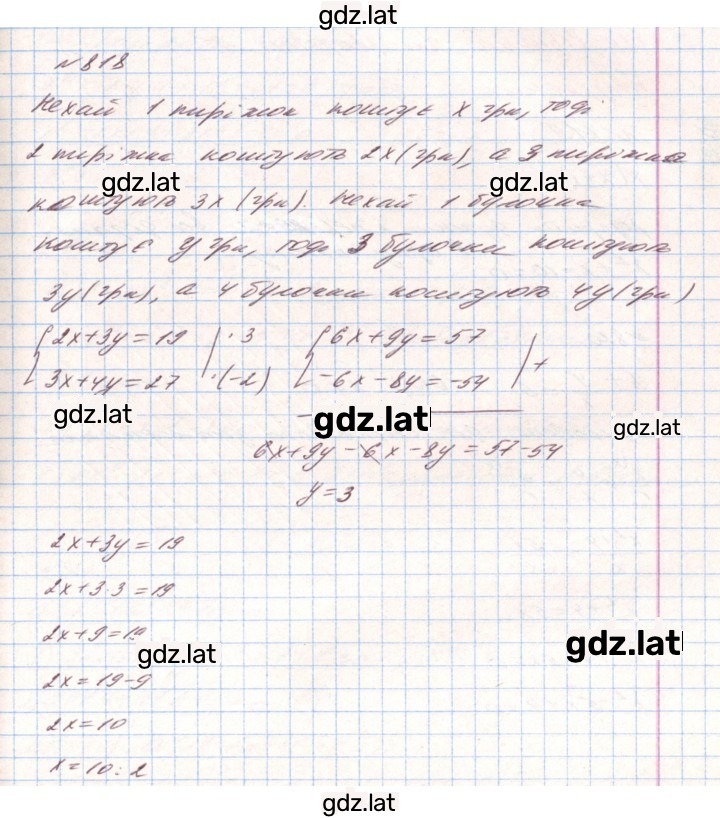 gdz.lat
№818
Нехай 1 пиріжок коштує х грн, тоді
2 пиріжка коштують 2х(грн), а 3 пиріжка
gdz.lat gdz.lat
коштують 3х (грн). Нехай 1 булочка
коштує у грн, тоді 3 булочки коштують
3у(грн), а 4 булочки коштують 4у(грн)
{2x+3y=19 | ·3 {6x+9y=57
{3x+4y=27 | ·(-2) {-6x-8y=-54 | +
gdz.lat gdz.lat gdz.lat
6x+9y-6x-8y=57-54
y=3
2x+3y=19
2x+3·3=19
2x+9=19
gdz.lat gdz.lat
2x=19-9
2x=10
x=10:2
gdz.lat